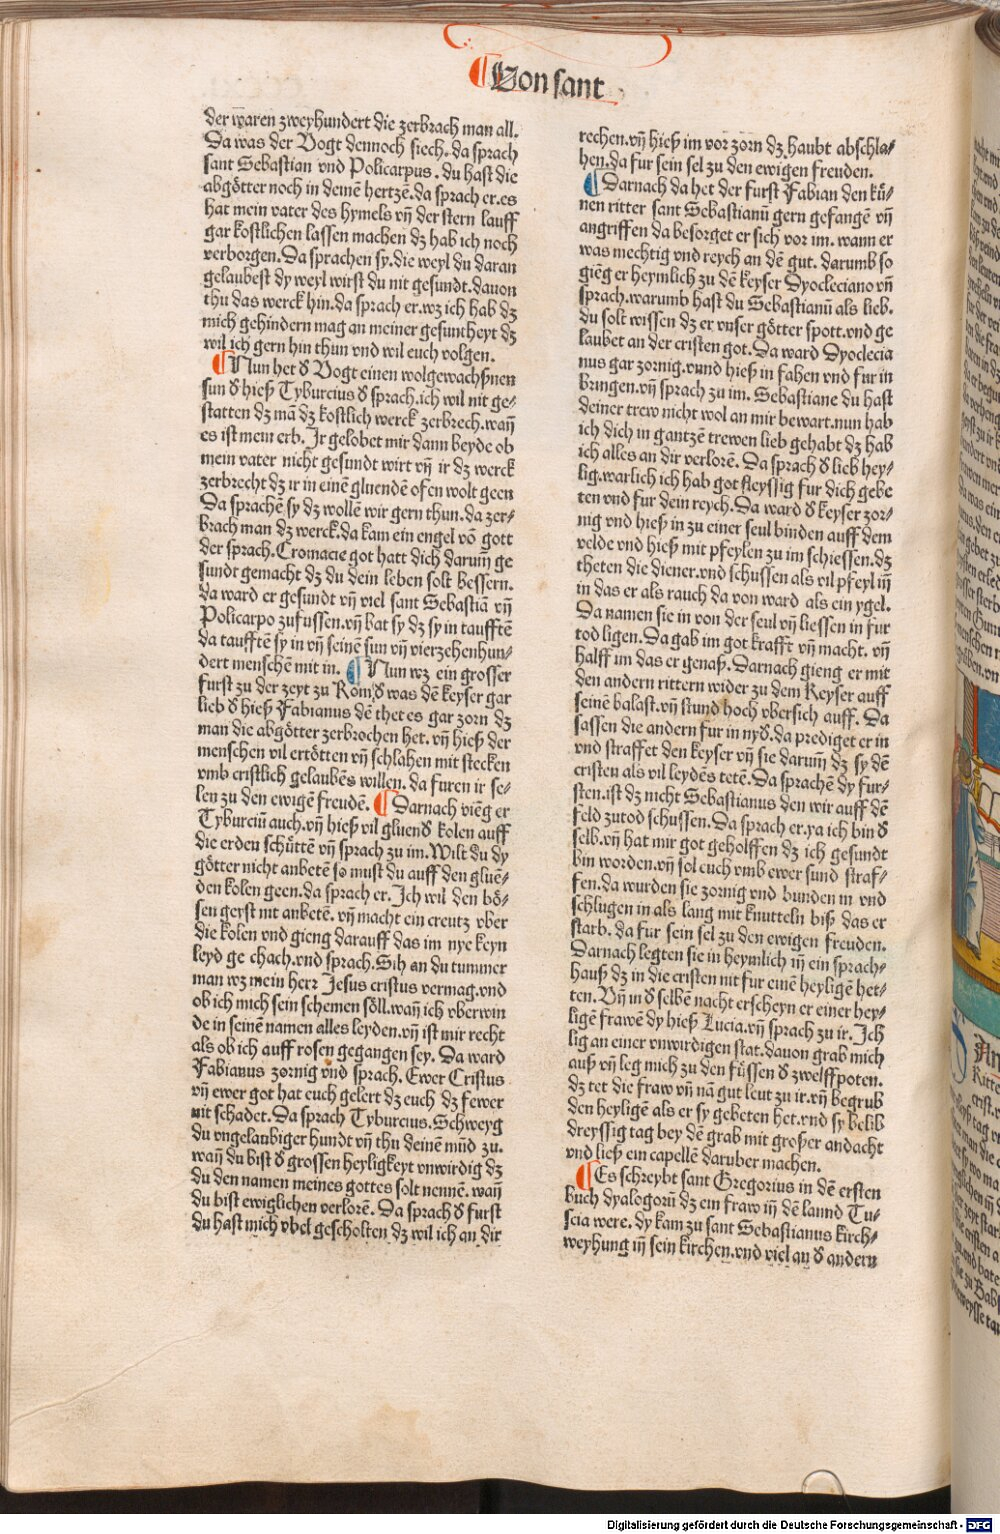 Uon sant
der waren zweyhundert die zerbrach man all.
Da was der Vogt dennoch siech. da sprach
sant Sebastian vnd Policarpus. du hast die
abgötter noch in deinē hertzē. da sprach er. es
hat mein vater des hymels vn̄ der stern lauff
gar kostlichen lassen machen dz hab ich noch
verborgen. Da sprachen sy. die weyl du daran
gelaubest dy weyl wirst du nit gesundt. dauon
thu das werck hin. da sprach er. wz ich hab dz
mich gehindern mag an meiner gesuntheyt dz
wil ich gern hin thun vnd wil euch volgen.
Nun het d̕ Vogt einen wolgewachßnen
sun d̕ hieß Tyburcius d̕ sprach. ich wil nit ge⸗
statten dz mā dz kostlich werck zerbrech. wan̄
es ist mein erb. Ir gelobet mir dann beyde ob
mein vater nicht gesundt wirt vn̄ ir dz werck
zerbrecht dz ir in einē gluendē ofen wolt geen
Da sprachē sy dz wollē wir gern thun. da zer⸗
brach man dz werck. da kam ein engel vō gott
der sprach. Cromacie got hatt dich darum̄ ge
sundt gemacht dz du dein leben solt bessern.
da ward er gesundt vn̄ viel sant Sebastiā vn̄
Policarpo zufussen. vn̄ bat sy dz sy in taufftē
da taufftē sy in vn̄ seinē sun vn̄ vierzehenhun⸗
dert menschē mit in. Nun wz ein grosser
furst zu der zeyt zu Rom. d̕ was dē keyser gar
lieb d̕ hieß Fabianus dē thet es gar zorn dz
man die abgötter zerbrochen het. vn̄ hieß der
menschen vil ertötten vn̄ schlahen mit stecken
vmb cristlich gelaubēs willen. da furen ir se⸗
len zu den ewigē freudē. Darnach viēg er
Tyburciū auch. vn̄ hieß vil gluend̕ kolen auff
die erden schüttē vn̄ sprach zu im. Wilt du dy
götter nicht anbetē so must du auff den gluē⸗
den kolen geen. da sprach er. Ich wil den bö⸗
sen geyst nit anbetē. vn̄ macht ein creutz vber
die kolen vnd gieng darauff das im nye keyn
leyd ge chach. vnd sprach. Sih an du tummer
man wz mein herr Jesus cristus vermag. vnd
ob ich mich sein schemen söll. wan̄ ich vberwin
de in seinē namen alles leyden. vn̄ ist mir recht
als ob ich auff rosen gegangen sey. Da ward
Fabianus zornig vnd sprach. Ewer Cristus
vn̄ ewer got hat euch gelert dz euch dz fewer
nit schadet. Da sprach Tyburcius. Schweyg
du vngelaubiger hundt vn̄ thu deinē mūd zu.
wan̄ du bist d̕ grossen heyligkeyt vnwirdig dz
du den namen meines gottes solt nennē. wan̄
du bist ewiglichen verlorē. Da sprach d̕ furst
du hast mich vbel gescholten dz wil ich an dir
rechen. vn̄ hieß im vor zorn dz haubt abschla⸗
hen. da fur sein sel zu den ewigen freuden.
Darnach da het der furst Fabian den kü⸗
nen ritter sant Sebastianū gern gefangē vn̄
angriffen da besorget er sich vor im. wann er
was mechtig vnd reych an dē gut. darumb so
giēg er heymlich zu dē keyser Dyocleciano vn̄
sprach. warumb hast du Sebastianū als lieb.
du solt wissen dz er vnser götter spott. vnd ge
laubet an der cristen got. Da ward Dyoclecia
nus gar zornig. vund hieß in fahen vnd fur in
bringen. vn̄ sprach zu im. Sebastiane du hast
deiner trew nicht wol an mir bewart. nun hab
ich dich in gantzē trewen lieb gehabt dz hab
ich alles an dir verlorē. Da sprach d̕ lieb hey⸗
lig. warlich ich hab got fleyssig fur dich gebe
ten vnd fur dein reych. Da ward d̕ keyser zor⸗
nig vnd hieß in zu einer seul binden auff dem
velde vnd hieß mit pfeylen zu im schiessen. dz
theten die diener. vnd schussen als vil pfeyl in̄
in das er als rauch da von ward als ein ygel.
Da namen sie in von der seul vn̄ liessen in fur
tod ligen. Da gab im got krafft vn̄ macht. vn̄
halff im das er genaß. Darnach gieng er mit
den andern rittern wider zu dem Keyser auff
seinē balast. vn̄ stund hoch vbersich auff. Da
sassen die andern fur in nyd̕. da prediget er in
vnd straffet den keyser vn̄ sie darum̄ dz sy dē
cristen als vil leydēs tetē. Da sprachē dy fur⸗
sten. ist dz nicht Sebastianus den wir auff dē
feld zutod schussen. Da sprach er. ya ich bin d̕
selb. vn̄ hat mir got geholffen dz ich gesundt
bin worden. vn̄ sol euch vmb ewer sund straf⸗
fen. da wurden sie zornig vnd bunden in vnd
schlugen in als lang mit knutteln biß das er
starb. da fur sein sel zu den ewigen freuden.
Darnach legten sie in heymlich in̄ ein sprach⸗
hauß dz in die cristen nit fur einē heyligē het⸗
ten. Vn̄ in d̕ selbē nacht erscheyn er einer hey⸗
ligē frawē dy hieß Lucia. vn̄ sprach zu ir. Ich
lig an einer vnwirdigen stat. dauon grab mich
auß vn̄ leg mich zu den füssen d̕ zwelffpoten.
dz tet die fraw vn̄ nā gut leut zu ir. vn̄ begrub
den heyligē als er sy gebeten het. vnd sy belib
dreyssig tag bey dē grab mit großer andacht
vnd ließ ein capellē daruber machen.
Es schreybt sant Gregorius in dē ersten
buch dyalogorū dz ein fraw in̄ dē lannd Tu⸗
scia were. dy kam zu sant Sebastianus kirch⸗
weyhung in̄ sein kirchen. vnd viel an d̕ andern
Digitalisierung gefördert durch die Deutsche Forschungsgemeinschaft - DFG